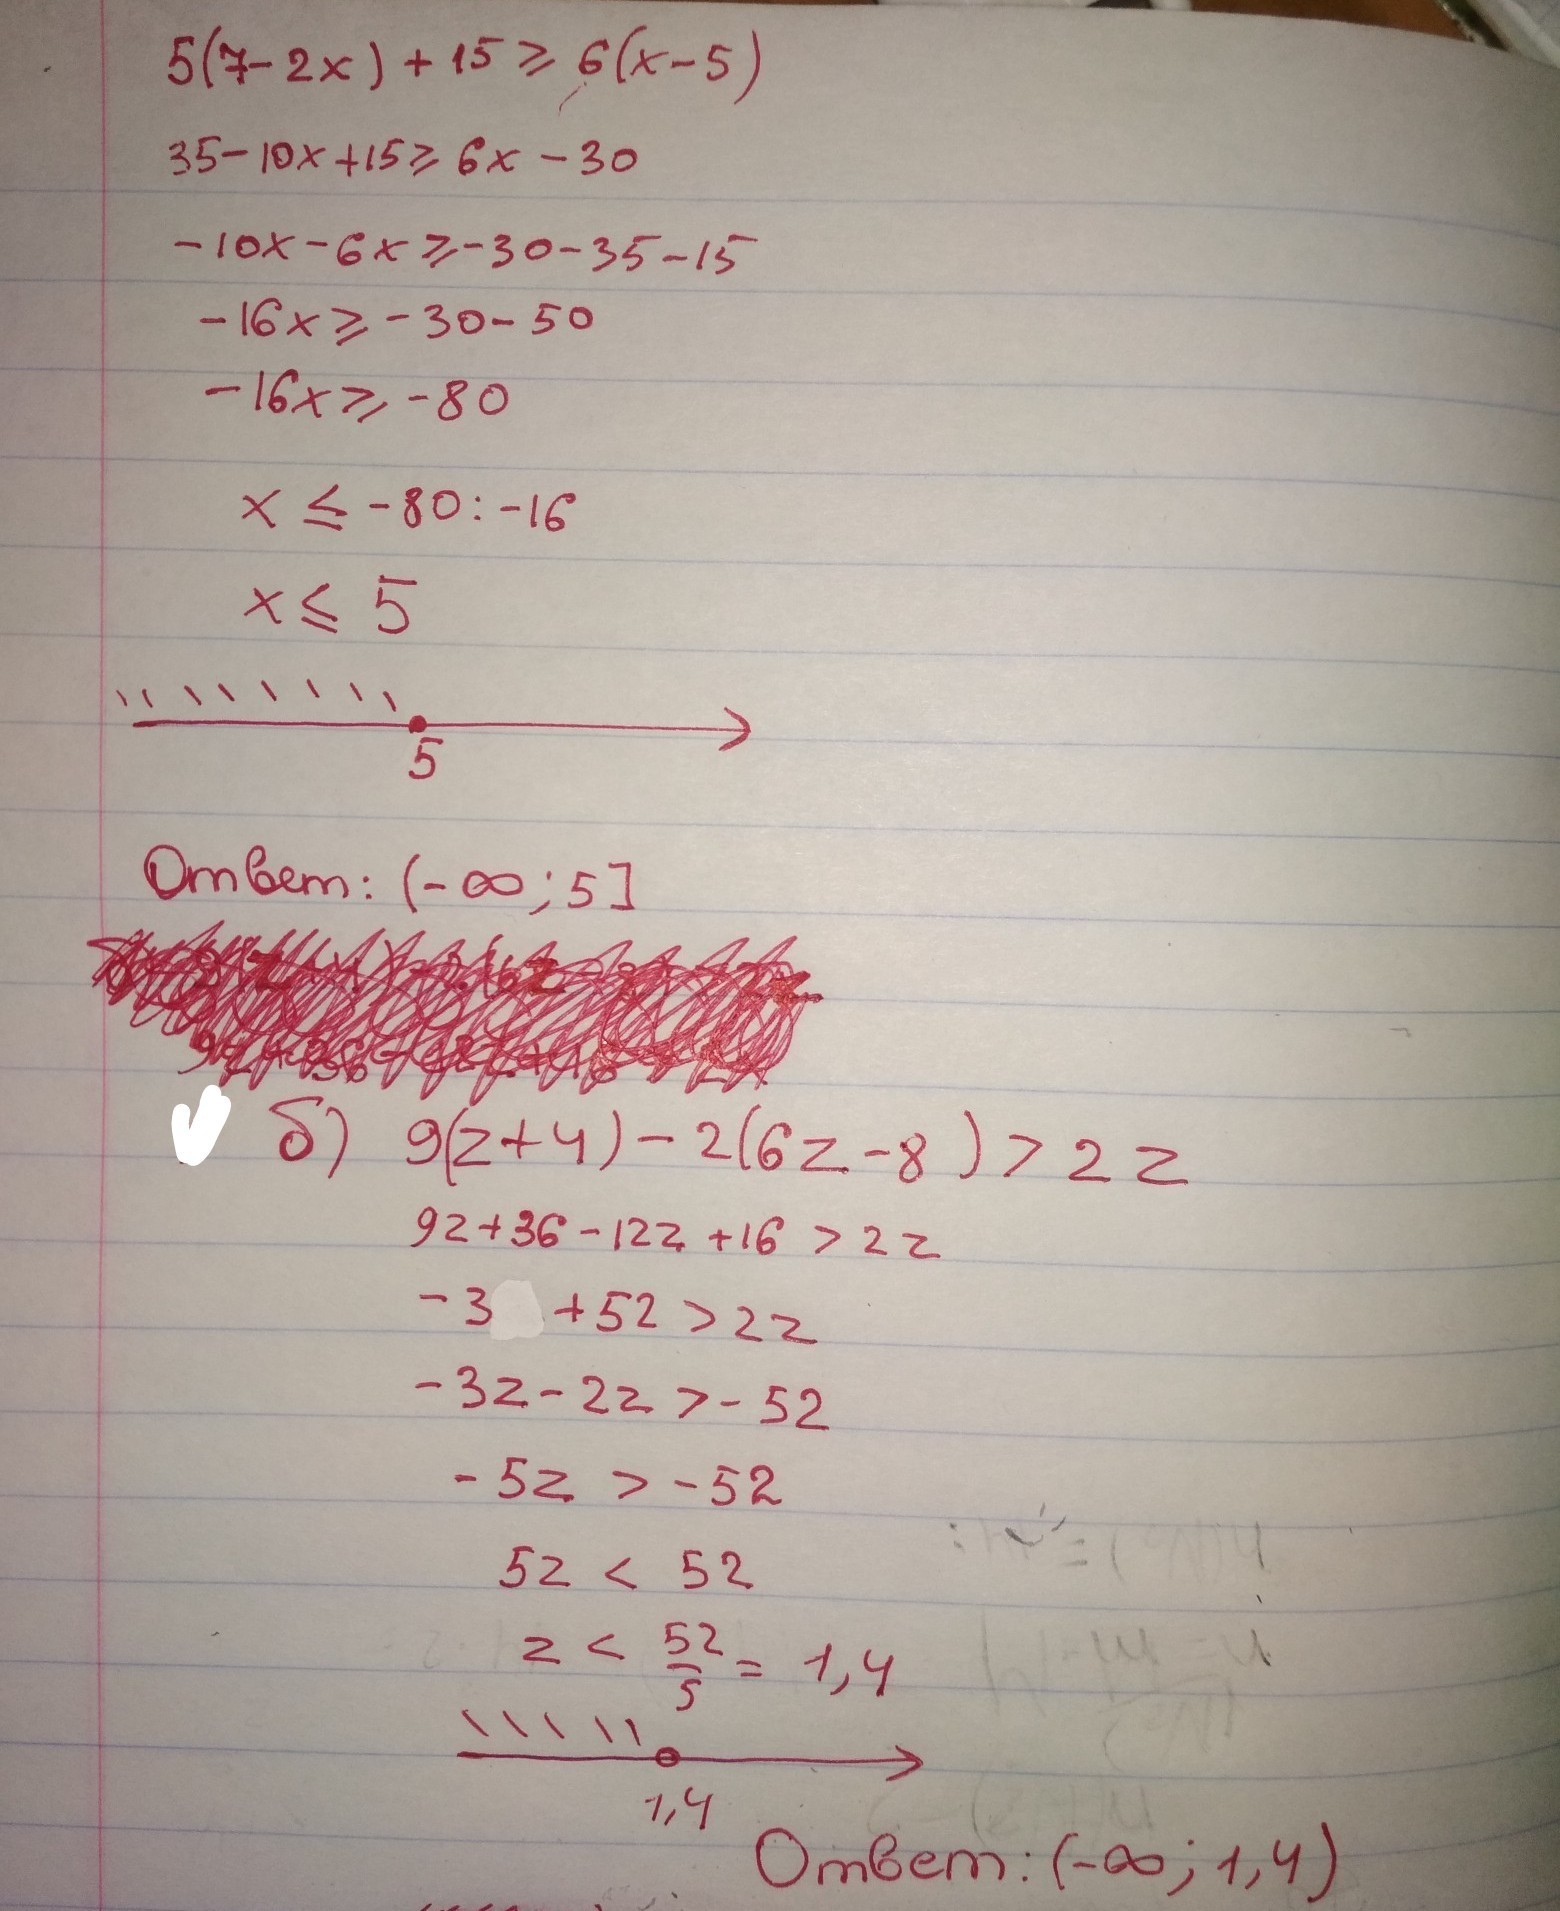 5(7-2x)+15⩾6(x-5)
35-10x+15⩾6x-30
-10x-6x⩾-30-35-15
-16x⩾-30-50
-16x⩾-80
x≤-80:-16
x≤5
5
Ответ: (-∞;5]
б) 9(z+4)-2(6z-8)>2z
9z+36-12z+16>2z
-3 +52>2z
-3z-2z>-52
-5z>-52
5z<52
z<52/5=1,4
1,4
Ответ: (-∞;1,4)